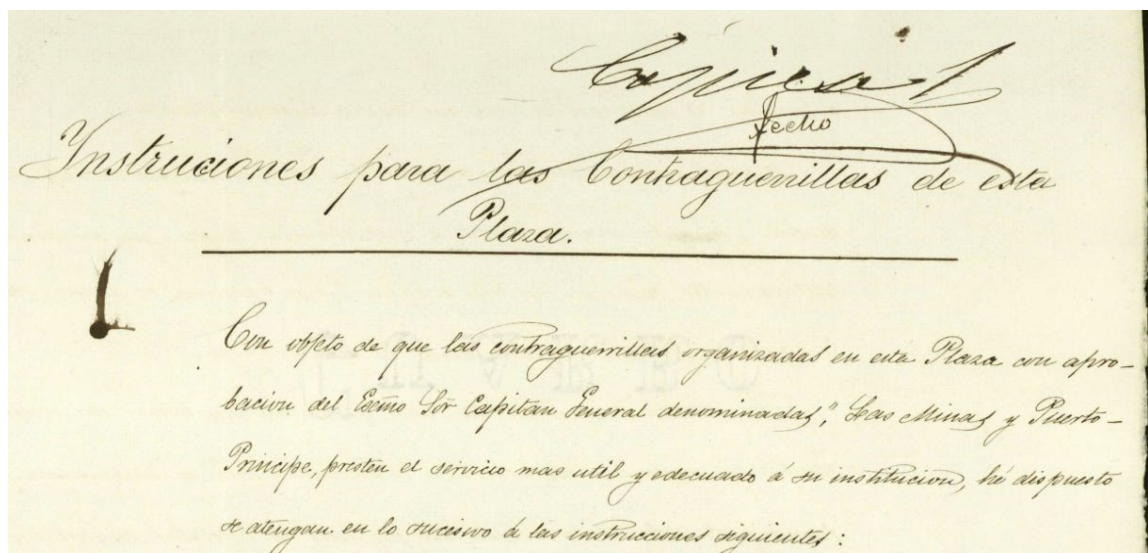 Copia 1
fecho
Instruciones para las Contraguerrillas de esta
Plaza.
Con objeto de que las contraguerrillas organizadas en esta Plaza con apro-
bacion del Escmo Sor Capitan General denominadas, "Las Minas y Puerto-
Principe, presten el servicio mas util y edecuado á su institucion, hé dispuesto
se atengan en lo sucesivo á las instrucciones siguientes: